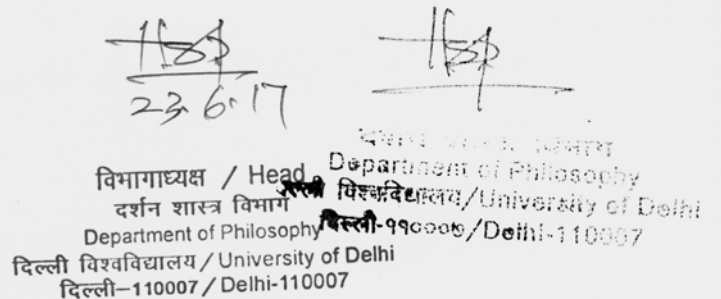 23.6.17
विभागाध्यक्ष / Head
दर्शन शास्त्र विभाग
Department of Philosophy
दिल्ली विश्वविद्यालय / University of Delhi
दिल्ली–110007 / Delhi-110007
Department of Philosophy
विश्वविद्यालय/University of Delhi
दिल्ली-११०००७/Delhi-110007